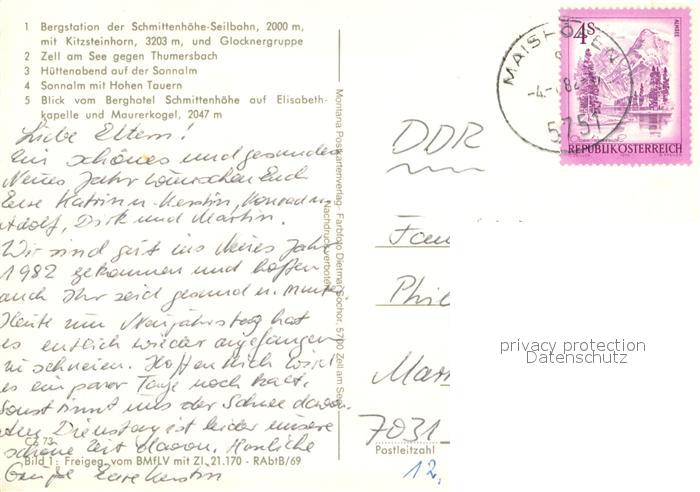 1 Bergstation der Schmittenhöhe-Seilbahn, 2000 m,
mit Kitzsteinhorn, 3203 m, und Glocknergruppe
2 Zell am See gegen Thumersbach
3 Hüttenabend auf der Sonnalm
4 Sonnalm mit Hohen Tauern
5 Blick vom Berghotel Schmittenhöhe auf Elisabeth-
kapelle und Maurerkogel, 2047 m
Liebe Eltern!
Ein schönes und gesundes
Neues Jahr wünschen Euch
Eure Katrin u. Kerstin, Konrad u.
Adolf, Dirk und Martin.
Wir sind gut ins Neues Jahr
1982 gekommen und hoffen
auch Ihr seid gesund u. munter.
Heute zum Neujahrstag hat
es entlich wieder angefangen
zu schneien. Hoffentlich wird
es ein paar Tage noch kalt,
sonst rinnt uns der Schnee davon.
Am Dienstag ist leider unsere
schöne Zeit davon. Herzliche
Grüße Eure Kerstin
CZ 73
Bild 1: Freigeg. vom BMfLV mit Zl. 21.170 - RAbtB/69
Montana Postkartenverlag Farbfoto Dietmar Sochor, 5700 Zell am See
Nachdruck verboten
MAISHOFEN
-4.-
82
5751
4 S
ALMSEE
REPUBLIK ÖSTERREICH
DDR
Fam
Phil
7031
Postleitzahl
12.
privacy protection
Datenschutz